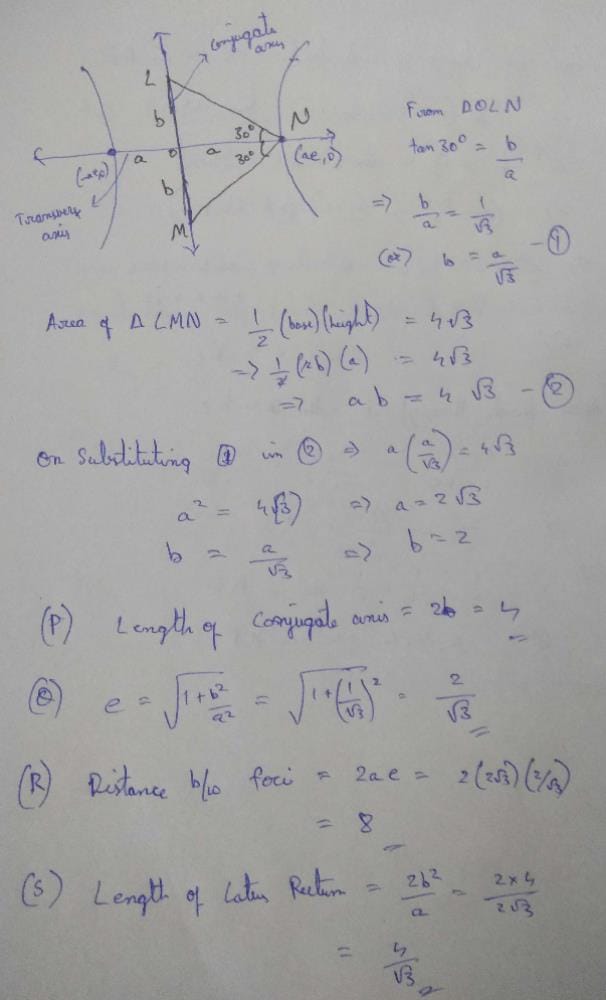 Conjugate axis
L
b
30°
30°
N
a
o
a
(ae,0)
b
M
Transverse axis
From ΔOLN
tan 30° = b/a
=> b/a = 1/√3
(or) b = a/√3 - ①
Area of Δ LMN = 1/2 (base)(height) = 4√3
=> 1/2 (2b)(a) = 4√3
=> ab = 4√3 - ②
On Substituting ① in ② => a(a/√3) = 4√3
a² = 4(3) => a = 2√3
b = a/√3 => b = 2
(P) Length of Conjugate axis = 2b = 4
(Q) e = √(1+b²/a²) = √(1+(1/√3)²) = 2/√3
(R) Distance b/w foci = 2ae = 2(2√3)(2/√3)
= 8
(S) Length of Latus Rectum = 2b²/a = 2×4/2√3
= 4/√3